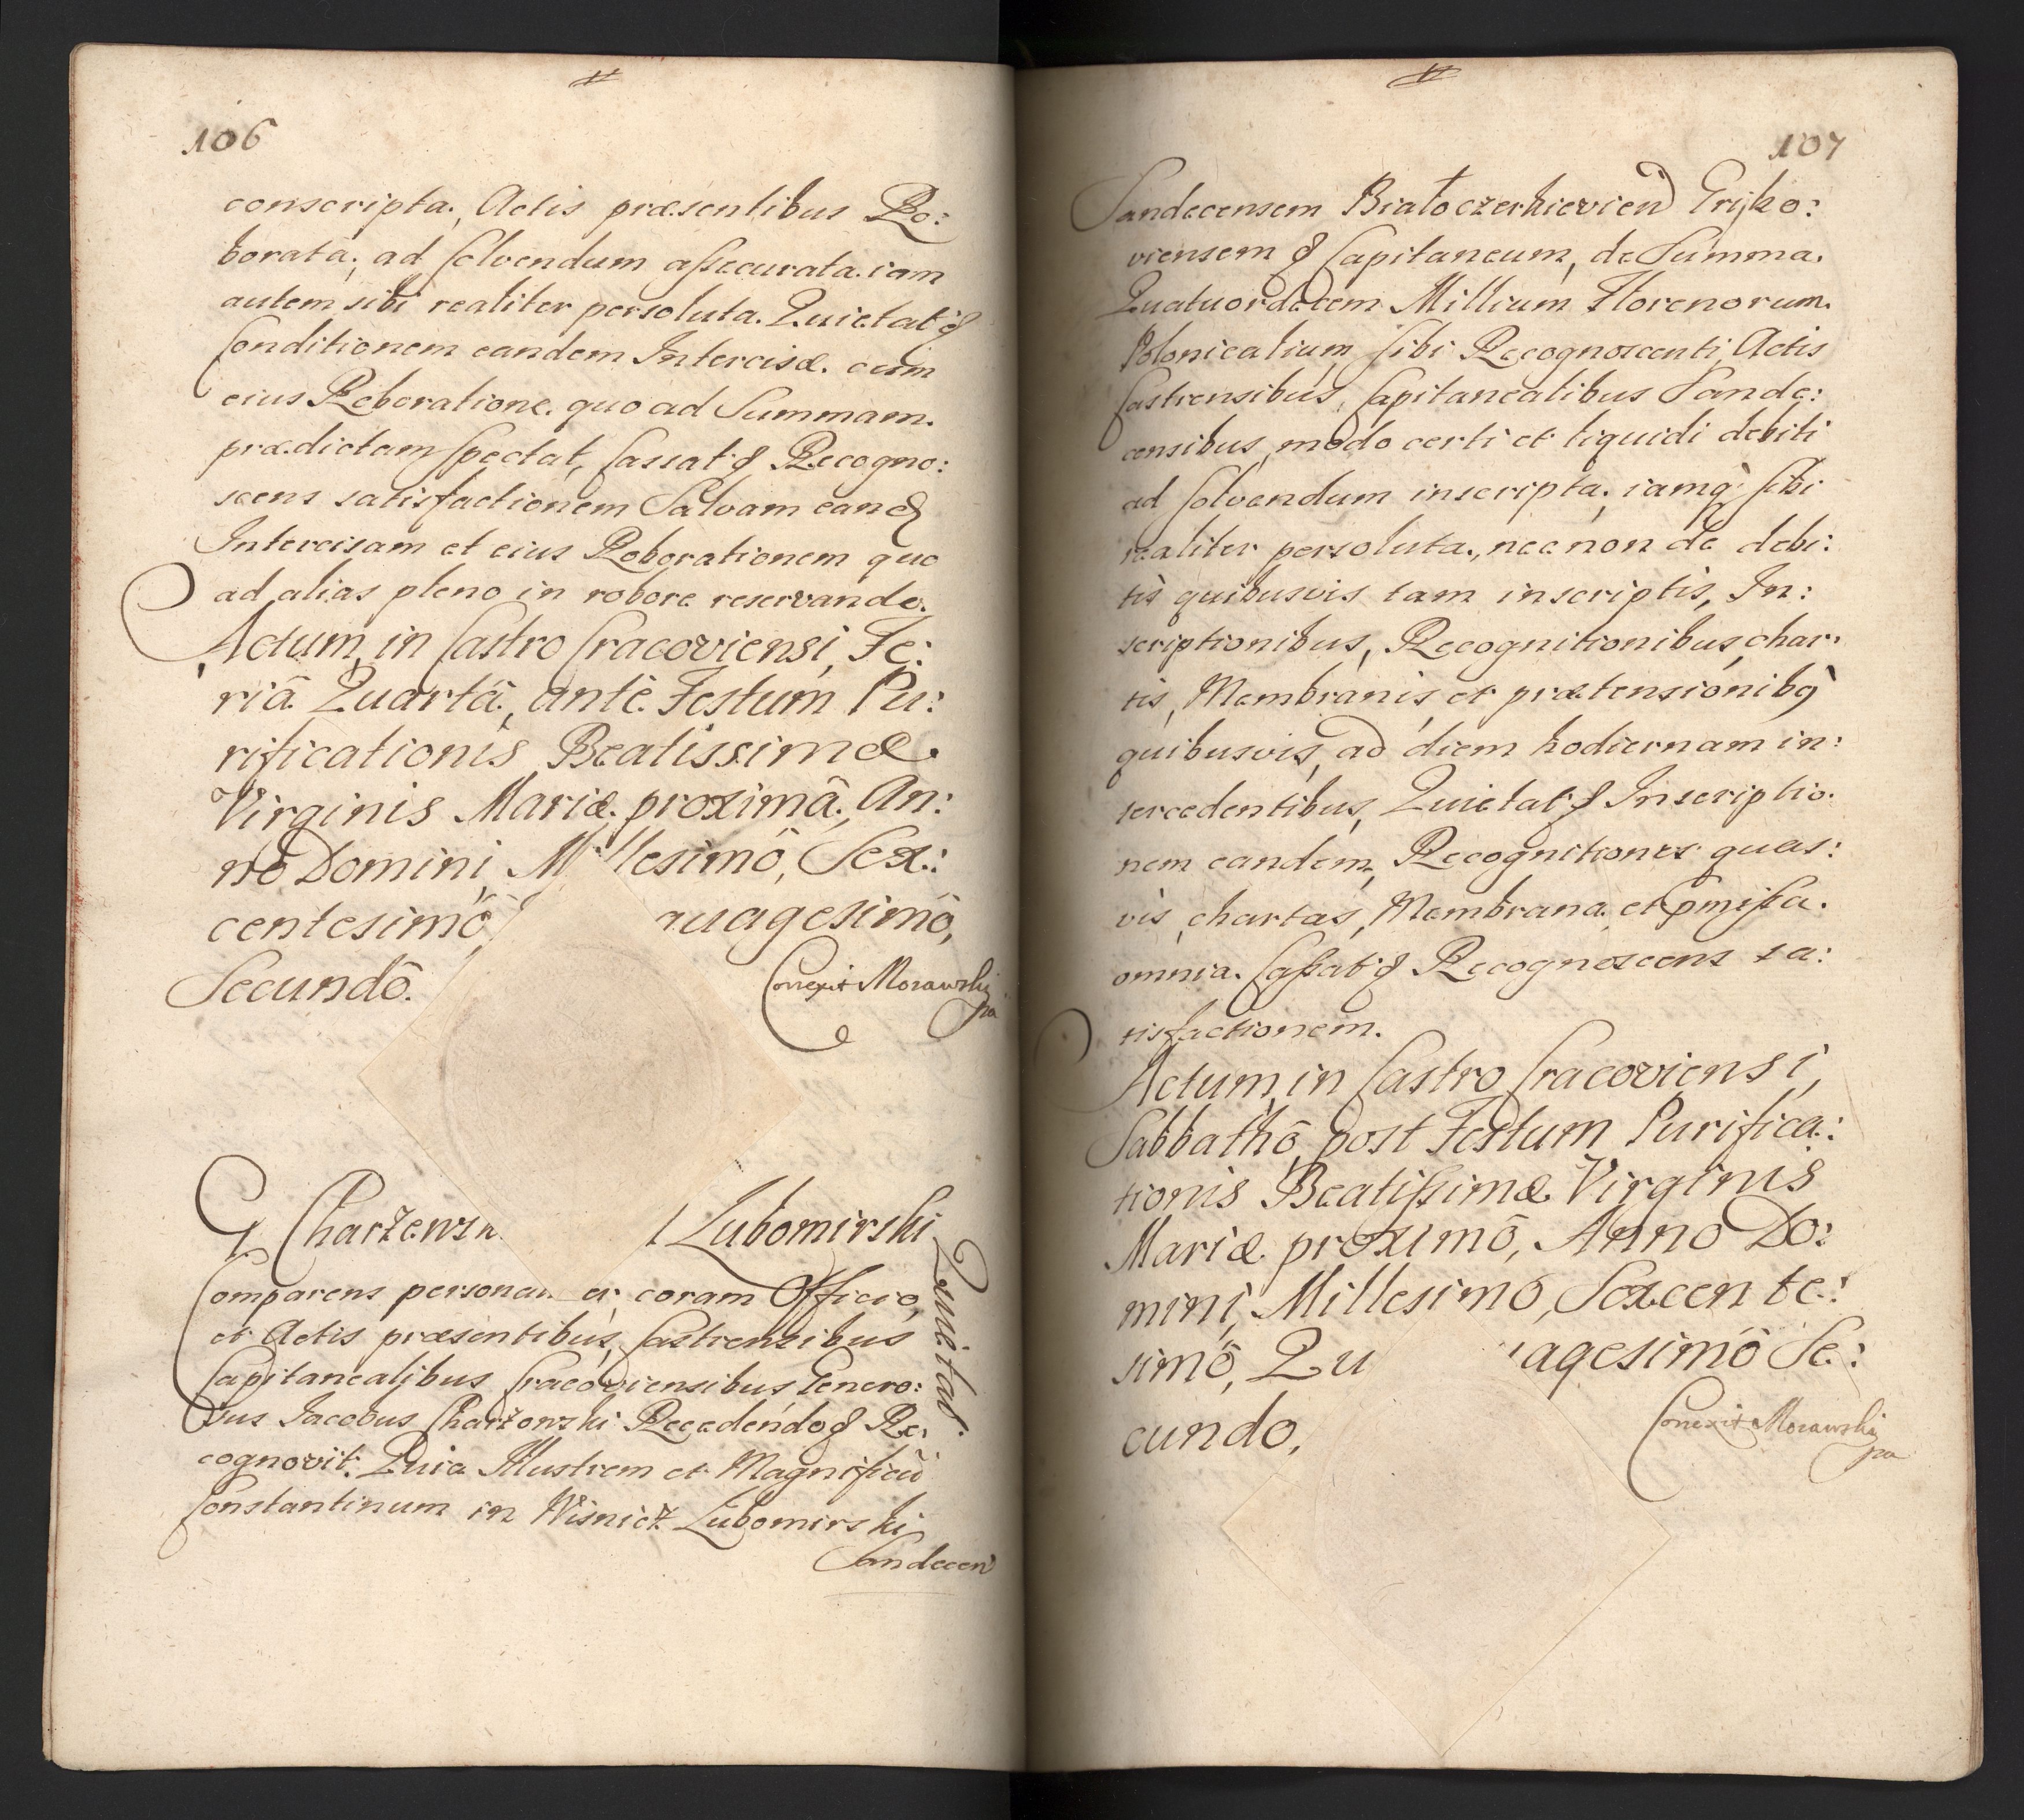 106
conscripta, Actis præsentibus Ro:
borata, ad solvendum assecurata. iam
autem sibi realiter persoluta. Quietat &
Conditionem eandem Intercisæ. cum
eius Roboratione. quo ad Summam.
prædictam spectat, Cassat & Recogno:
scens satisfactionem Salvam eand
Intercisam et eius Roborationem quo
ad alias pleno in robore reservando.
Actum, in Castro Cracoviensi, Fe:
riâ Quartâ, ante Festum Pu:
rificationis Beatissimæ.
Virginis Mariæ. proximâ, An:
no Domini, M llesimô, Sex:
centesimô uagesimô,
Secundô.
Conexit Morawski
G Charzews Lubomirski
Quietat.
Comparens persona er, coram Officio,
et Actis præsentibus, Castrensibus
Capitanealibus Cracoviensibus Genero:
sus Iacobus Charzowski Recedendo & Re:
cognovit. Quia Illustrem et Magnificũ
Constantinum in Wisnicz Lubomirski
Sandecen
107
Sandecensem Białoczerkievien Gryko:
viensem & Capitaneum, de Summa.
Quatuordecem Millium Florenorum.
Polonicalium, sibi Recognoscenti, Actis
Castrensibus, Capitanealibus Sande:
censibus, modo certi et liquidi debiti
ad solvendum inscripta, iamq sibi
realiter persoluta, necnon de debi:
tis quibusvis tam inscriptis, In:
scriptionibus, Recognitionibus, char:
tis, Membranis, et prætensionibq
quibusvis, ad diem hodiernam in:
tercedentibus, Quietat & Inscriptio:
nem eandem, Recognitiones quas:
vis, chartas, Membrana. et pmissa.
omnia. Cassat & Recognoscens sa:
tisfactionem.
Actum, in Castro Cracoviensi,
Sabbathô, post Festum Purifica:
tionis Beatissimæ Virginis
Mariæ proximô, Anno Do:
mini, Millesimo, Sexcente:
simô, Qu agesimô Se:
cundo,
Conexit Morawski